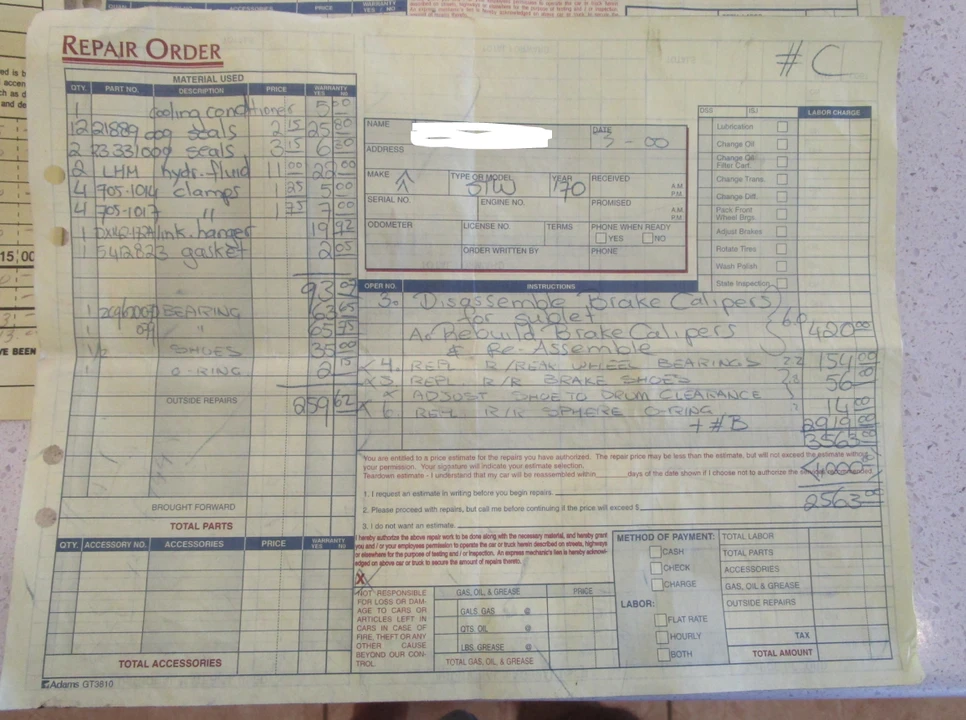 # C
REPAIR ORDER
MATERIAL USED
QTY. PART NO. DESCRIPTION PRICE WARRANTY YES No
1 cooling conditioner 5 00
12 21889 009 seals 2 15 25 80
2 23331 009 seals 3 15 6 30
2 LHM hydr. fluid 11 00 22 00
4 705-1014 clamps 1 25 5 00
4 705-1017 " 1 75 7 00
1 ink. hanger 19 92
1 5412823 gasket 2 05
93
1 BEARING 63
1 " 65 75
1/2 SHOES 35 00
1 O-RING 2 15
OUTSIDE REPAIRS
259 62
BROUGHT FORWARD
TOTAL PARTS
QTY. ACCESSORY NO. ACCESSORIES PRICE WARRANTY YES No
TOTAL ACCESSORIES
Adams GT3810
NAME
DATE
3 - 00
ADDRESS
MAKE TYPE OR MODEL YEAR RECEIVED A.M. P.M.
S/W '70
SERIAL NO. ENGINE NO. PROMISED A.M. P.M.
ODOMETER LICENSE NO. TERMS PHONE WHEN READY
YES NO
ORDER WRITTEN BY PHONE
LABOR CHARGE
Lubrication
Change Oil
Change Oil Filter Cart.
Change Trans.
Change Diff.
Pack Front Wheel Brgs.
Adjust Brakes
Rotate Tires
Wash Polish
State Inspection
OPER NO. INSTRUCTIONS
3. Disassemble Brake Calipers
for sublet
A. Rebuild Brake Calipers 6.0 420 00
& Re-Assemble
4. REPL. R/REAR WHEEL BEARINGS 2.2 154 00
REPL. R/R BRAKE SHOES 56
ADJUST SHOE TO DRUM CLEARANCE
6. REPL. R/R SPHERE O-RING 14 00
+ #B 2919
3563
1000
2563
You are entitled to a price estimate for the repairs you have authorized. The repair price may be less than the estimate, but will not exceed the estimate without
your permission. Your signature will indicate your estimate selection.
Teardown estimate - I understand that my car will be reassembled within days of the date shown if I choose not to authorize the
1. I request an estimate in writing before you begin repairs.
2. Please proceed with repairs, but call me before continuing if the price will exceed $
3. I do not want an estimate.
I hereby authorize the above repair work to be done along with the necessary material, and hereby grant
you and / or your employees permission to operate the car or truck herein described on streets, highways
or elsewhere for the purpose of testing and / or inspection. An express mechanic's lien is hereby acknowl-
edged on above car or truck to secure the amount of repairs thereto.
X
NOT RESPONSIBLE
FOR LOSS OR DAM-
AGE TO CARS OR
ARTICLES LEFT IN
CARS IN CASE OF
FIRE, THEFT OR ANY
OTHER CAUSE
BEYOND OUR CON-
TROL
GAS, OIL & GREASE PRICE
GALS. GAS @
QTS. OIL @
LBS. GREASE @
TOTAL GAS, OIL & GREASE
METHOD OF PAYMENT:
CASH
CHECK
CHARGE
LABOR:
FLAT RATE
HOURLY
BOTH
TOTAL LABOR
TOTAL PARTS
ACCESSORIES
GAS, OIL & GREASE
OUTSIDE REPAIRS
TAX
TOTAL AMOUNT